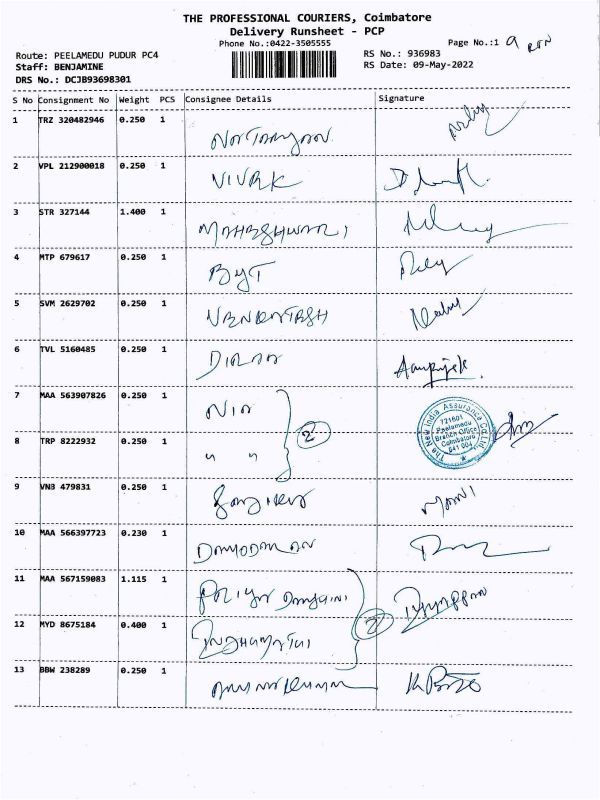 THE PROFESSIONAL COURIERS, Coimbatore
Delivery Runsheet - PCP
Phone No.:0422-3505555
Page No.:1
Route: PEELAMEDU PUDUR PC4
RS No.: 936983
Staff: BENJAMINE
RS Date: 09-May-2022
DRS No.: DCJB93698301
S No Consignment No Weight PCS Consignee Details Signature
1 TRZ 320482946 0.250 1
2 VPL 212900018 0.250 1 VIVEK
3 STR 327144 1.400 1 MAHESHWARI
4 MTP 679617 0.250 1
5 SVM 2629702 0.250 1 VENKATESH
6 TVL 5160485 0.250 1
7 MAA 563907826 0.250 1 NIA
8 TRP 8222932 0.250 1 " " 2
The New India Assurance Co. Ltd.
721601
Peelamedu
Branch Office
Coimbatore
641 004
9 VNB 479831 0.250 1 MANI
10 MAA 566397723 0.230 1 DAMODARAN
11 MAA 567159083 1.115 1
12 MYD 8675184 0.400 1 2
13 BBW 238289 0.250 1